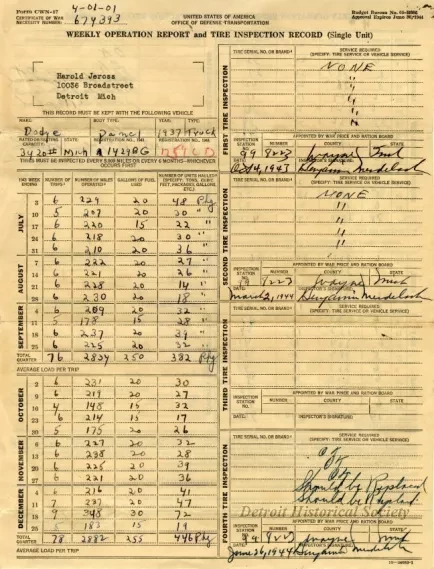 FORM CWN-17
CERTIFICATE OF WAR
NECESSITY NUMBER
4-01-01
674393
UNITED STATES OF AMERICA
OFFICE OF DEFENSE TRANSPORTATION
WEEKLY OPERATION REPORT and TIRE INSPECTION RECORD (Single Unit)
Harold Jerosz
10036 Broadstreet
Detroit Mich
THIS RECORD MUST BE KEPT WITH THE FOLLOWING VEHICLE
MAKE: BODY TYPE: YEAR: TYPE:
Dodge Panel 1937 Truck
STATE: REGISTRATION NO., 1943 REGISTRATION NO., 1944
Mich
TIRES MUST BE INSPECTED EVERY 5,000 MILES OR EVERY 6 MONTHS—WHICHEVER
OCCURS FIRST
TWO WEEK ENDING NUMBER OF TRIPS NUMBER OF MILES OPERATED GALLONS OF FUEL USED NUMBER OF UNITS HAULED
JULY
3 6 229 20 48 Pkg
10 5 207 20 30 "
17 6 220 15 22 "
24 6 218 20 30 "
31 6 218 20 36 "
AUGUST
7 6 222 20 27 "
14 6 221 20 26 "
21 6 228 20 14 "
28 6 230 20 18 "
SEPTEMBER
4 6 209 20 32 "
11 5 178 15 28 "
18 6 237 20 39 "
25 6 225 20 32 "
TOTAL QUARTER 76 2839 250 382 Pkg
AVERAGE LOAD PER TRIP
OCTOBER
2 6 231 20 30
9 6 219 20 27
16 4 148 15 32
23 6 214 15 17
30 5 175 20 26
NOVEMBER
6 6 227 20 32
13 6 238 20 28
20 6 225 20 39
27 6 221 20 36
DECEMBER
4 6 216 20 41
11 7 237 20 47
18 9 348 30 72
25 5 183 15 19
TOTAL QUARTER 78 2882 255 446 Pkg
AVERAGE LOAD PER TRIP
FIRST TIRE INSPECTION
TIRE SERIAL NO. OR BRAND SERVICE REQUIRED
(SPECIFY: TIRE SERVICE OR VEHICLE SERVICE)
NONE
"
"
"
"
APPOINTED BY WAR PRICE AND RATION BOARD
INSPECTION STATION NO. NUMBER COUNTY STATE
Wayne
DATE:
Oct 4, 1943
SECOND TIRE INSPECTION
TIRE SERIAL NO. OR BRAND SERVICE REQUIRED
(SPECIFY: TIRE SERVICE OR VEHICLE SERVICE)
NONE
"
"
"
APPOINTED BY WAR PRICE AND RATION BOARD
INSPECTION STATION NO. NUMBER COUNTY STATE
Wayne Mich
March 2, 1944
THIRD TIRE INSPECTION
TIRE SERIAL NO. OR BRAND SERVICE REQUIRED
(SPECIFY: TIRE SERVICE OR VEHICLE SERVICE)
APPOINTED BY WAR PRICE AND RATION BOARD
INSPECTION STATION NO. NUMBER COUNTY STATE
DATE: INSPECTOR'S SIGNATURE:
FOURTH TIRE INSPECTION
TIRE SERIAL NO. OR BRAND SERVICE REQUIRED
(SPECIFY: TIRE SERVICE OR VEHICLE SERVICE)
Should be Replaced
Should be Replaced
Detroit Historical Society
APPOINTED BY WAR PRICE AND RATION BOARD
INSPECTION STATION NO. NUMBER COUNTY STATE
Wayne Mich
June 26, 1944